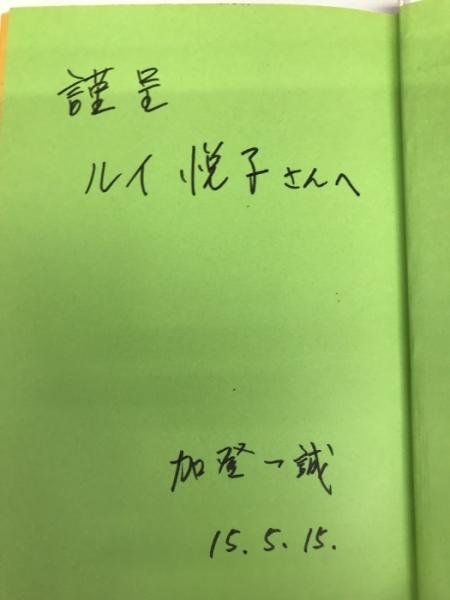 謹呈
ルイ 悦子さんへ
加登一誠
15.5.15.